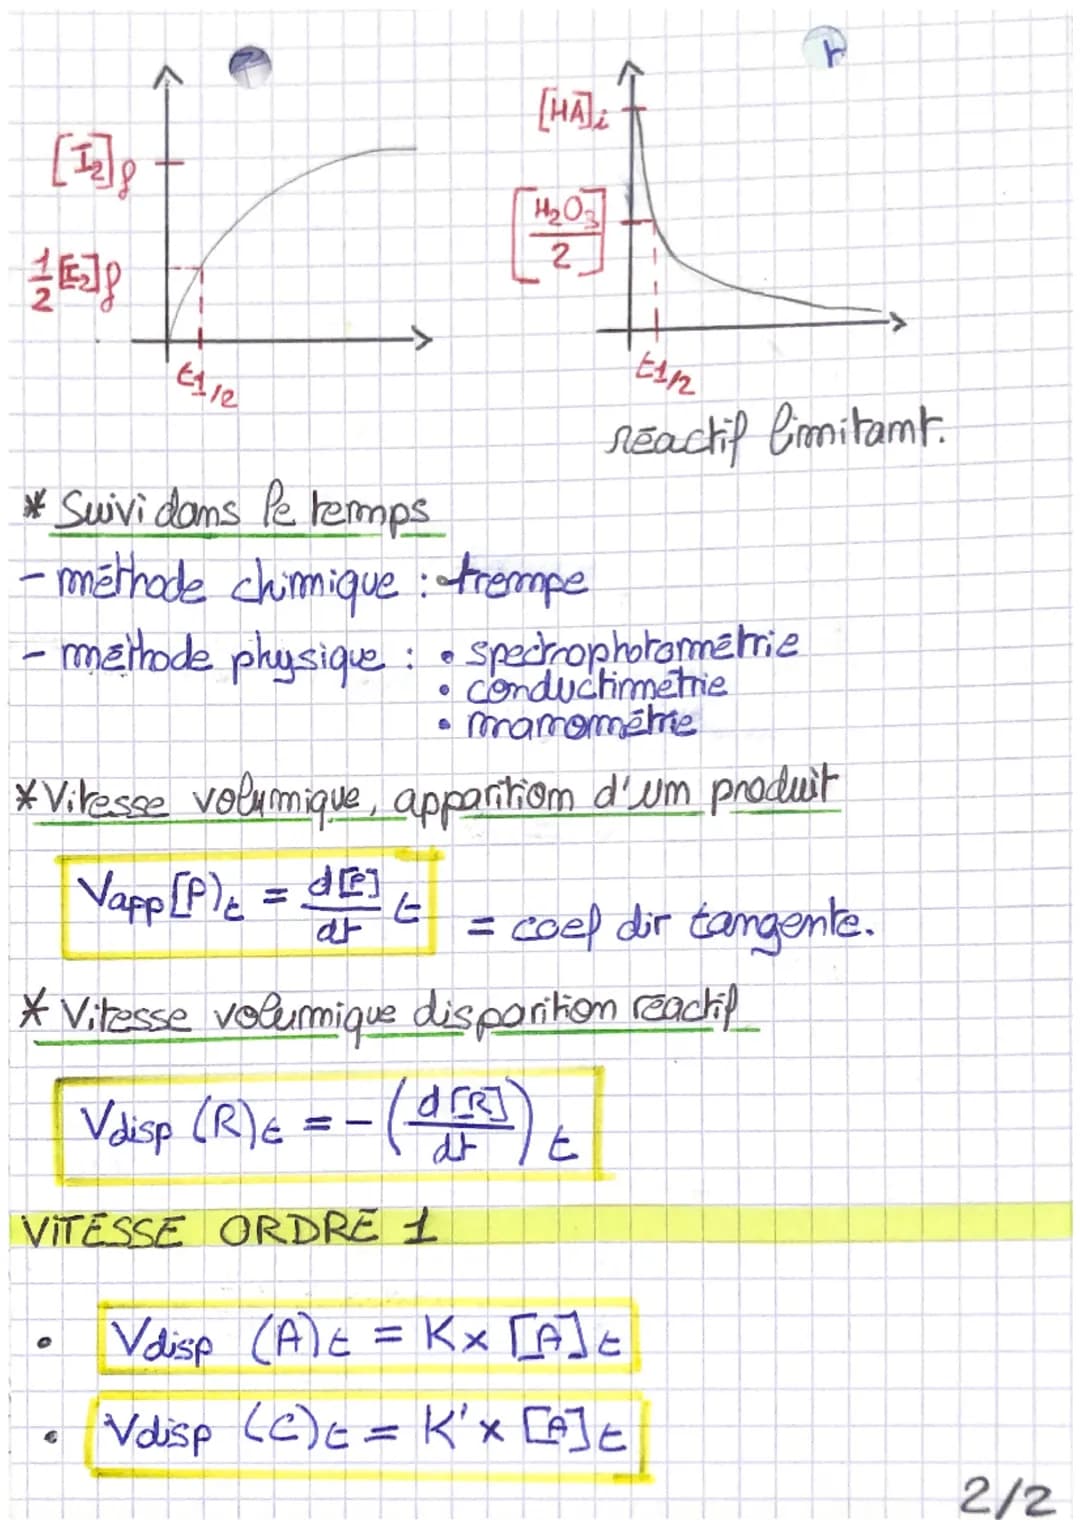 [I₂]f
½[I₂]f
t1/2
[HA]i
[H₂O₃/2]
t1/2
réactif limitant.
* Suivi dans le temps
- méthode chimique : • trempe
- méthode physique : • spectrophotométrie
• conductimétrie
• manométrie
* Vitesse volumique, apparition d'un produit
Vapp[P)t = d[P]/dt t = coef dir tangente.
* Vitesse volumique disparition réactif
Vdisp (R)t = -(d[R]/dt)t
VITESSE ORDRE 1
• Vdisp (A)t = K x [A]t
• Vdisp (C)t = K' x [A]t
2/2